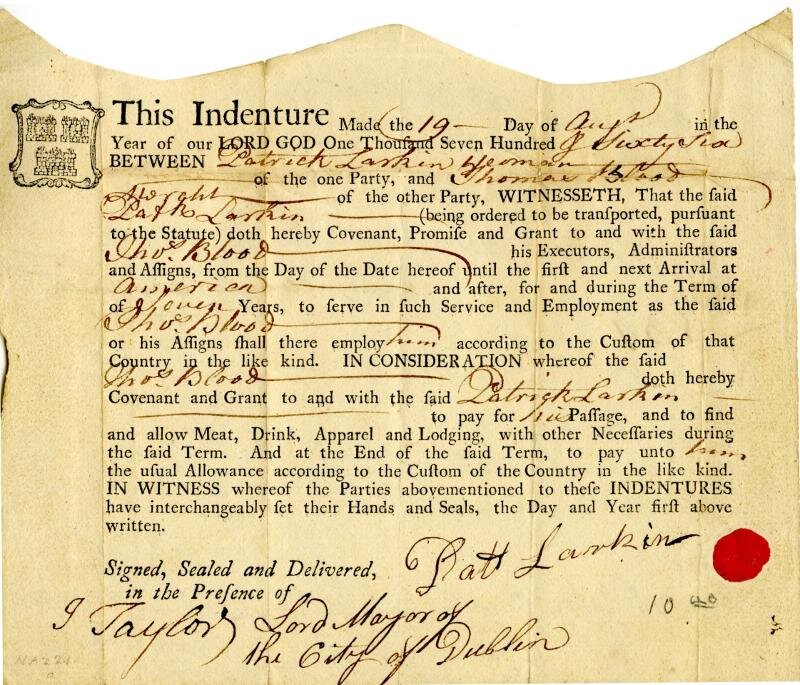 This Indenture Made the 19 Day of Augt in the
Year of our LORD GOD One Thouſand Seven Hundred & Sixty Six
BETWEEN Patrick Larkin Yeoman
of the one Party, and Thomas Blood
of the other Party, WITNESSETH, That the ſaid
Patk Larkin (being ordered to be tranſported, purſuant
to the Statute) doth hereby Covenant, Promiſe and Grant to and with the ſaid
Thos. Blood his Executors, Adminiſtrators
and Aſſigns, from the Day of the Date hereof until the firſt and next Arrival at
America and after, for and during the Term of
of Seven Years, to ſerve in ſuch Service and Employment as the ſaid
Thos. Blood
or his Aſſigns ſhall there employ him according to the Cuſtom of that
Country in the like kind. IN CONSIDERATION whereof the ſaid
Thos. Blood doth hereby
Covenant and Grant to and with the ſaid Patrick Larkin
to pay for his Paſſage, and to find
and allow Meat, Drink, Apparel and Lodging, with other Neceſſaries during
the ſaid Term. And at the End of the ſaid Term, to pay unto him
the uſual Allowance according to the Cuſtom of the Country in the like kind.
IN WITNESS whereof the Parties abovementioned to theſe INDENTURES
have interchangeably ſet their Hands and Seals, the Day and Year firſt above
written.
Signed, Sealed and Delivered, Patt Larkin
in the Preſence of
J Taylor Lord Mayor of
the City of Dublin
10